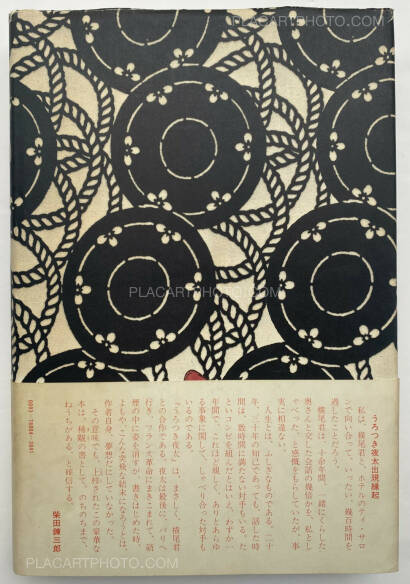 PLACARTPHOTO.COM
PLACARTPHOTO.COM
PLACARTPHOTO.COM
うろつき夜太出現縁起
私は、横尾君と、ホテルのティ・サロ
ンで向い合って、いったい、幾百時間を
過したことだろう。
横尾君は、十余年間、一緒にくらした
奥さんと交した会話の幾倍かを、私とし
ゃべった、と感慨をもらしていたが、事
実に相違ない。
人生とは、ふしぎなものである。二十
年、三十年の知己であっても、話した時
間は、数時間に満たない対手もいる。た
といコンビを組んだとはいえ、わずか一
年間で、これほど親しく、ありとあらゆ
る事象に関して、しゃべり合った対手も
いるのである。
『うろつき夜太』は、まさしく、横尾君
との合作である。夜太は最後に、パリへ
行き、フランス革命にまきこまれて、硝
煙の中に姿を消すが、書きはじめた時、
よもや、こんな突飛な結末になろうとは、
作者自身、夢想だにしていなかった。
その意味でも、上梓されたこの豪華な
本は、稀覯の書として、のちのちまで、
ねうちがある、と確信する。
柴田錬三郎
PLACARTPHOTO.COM